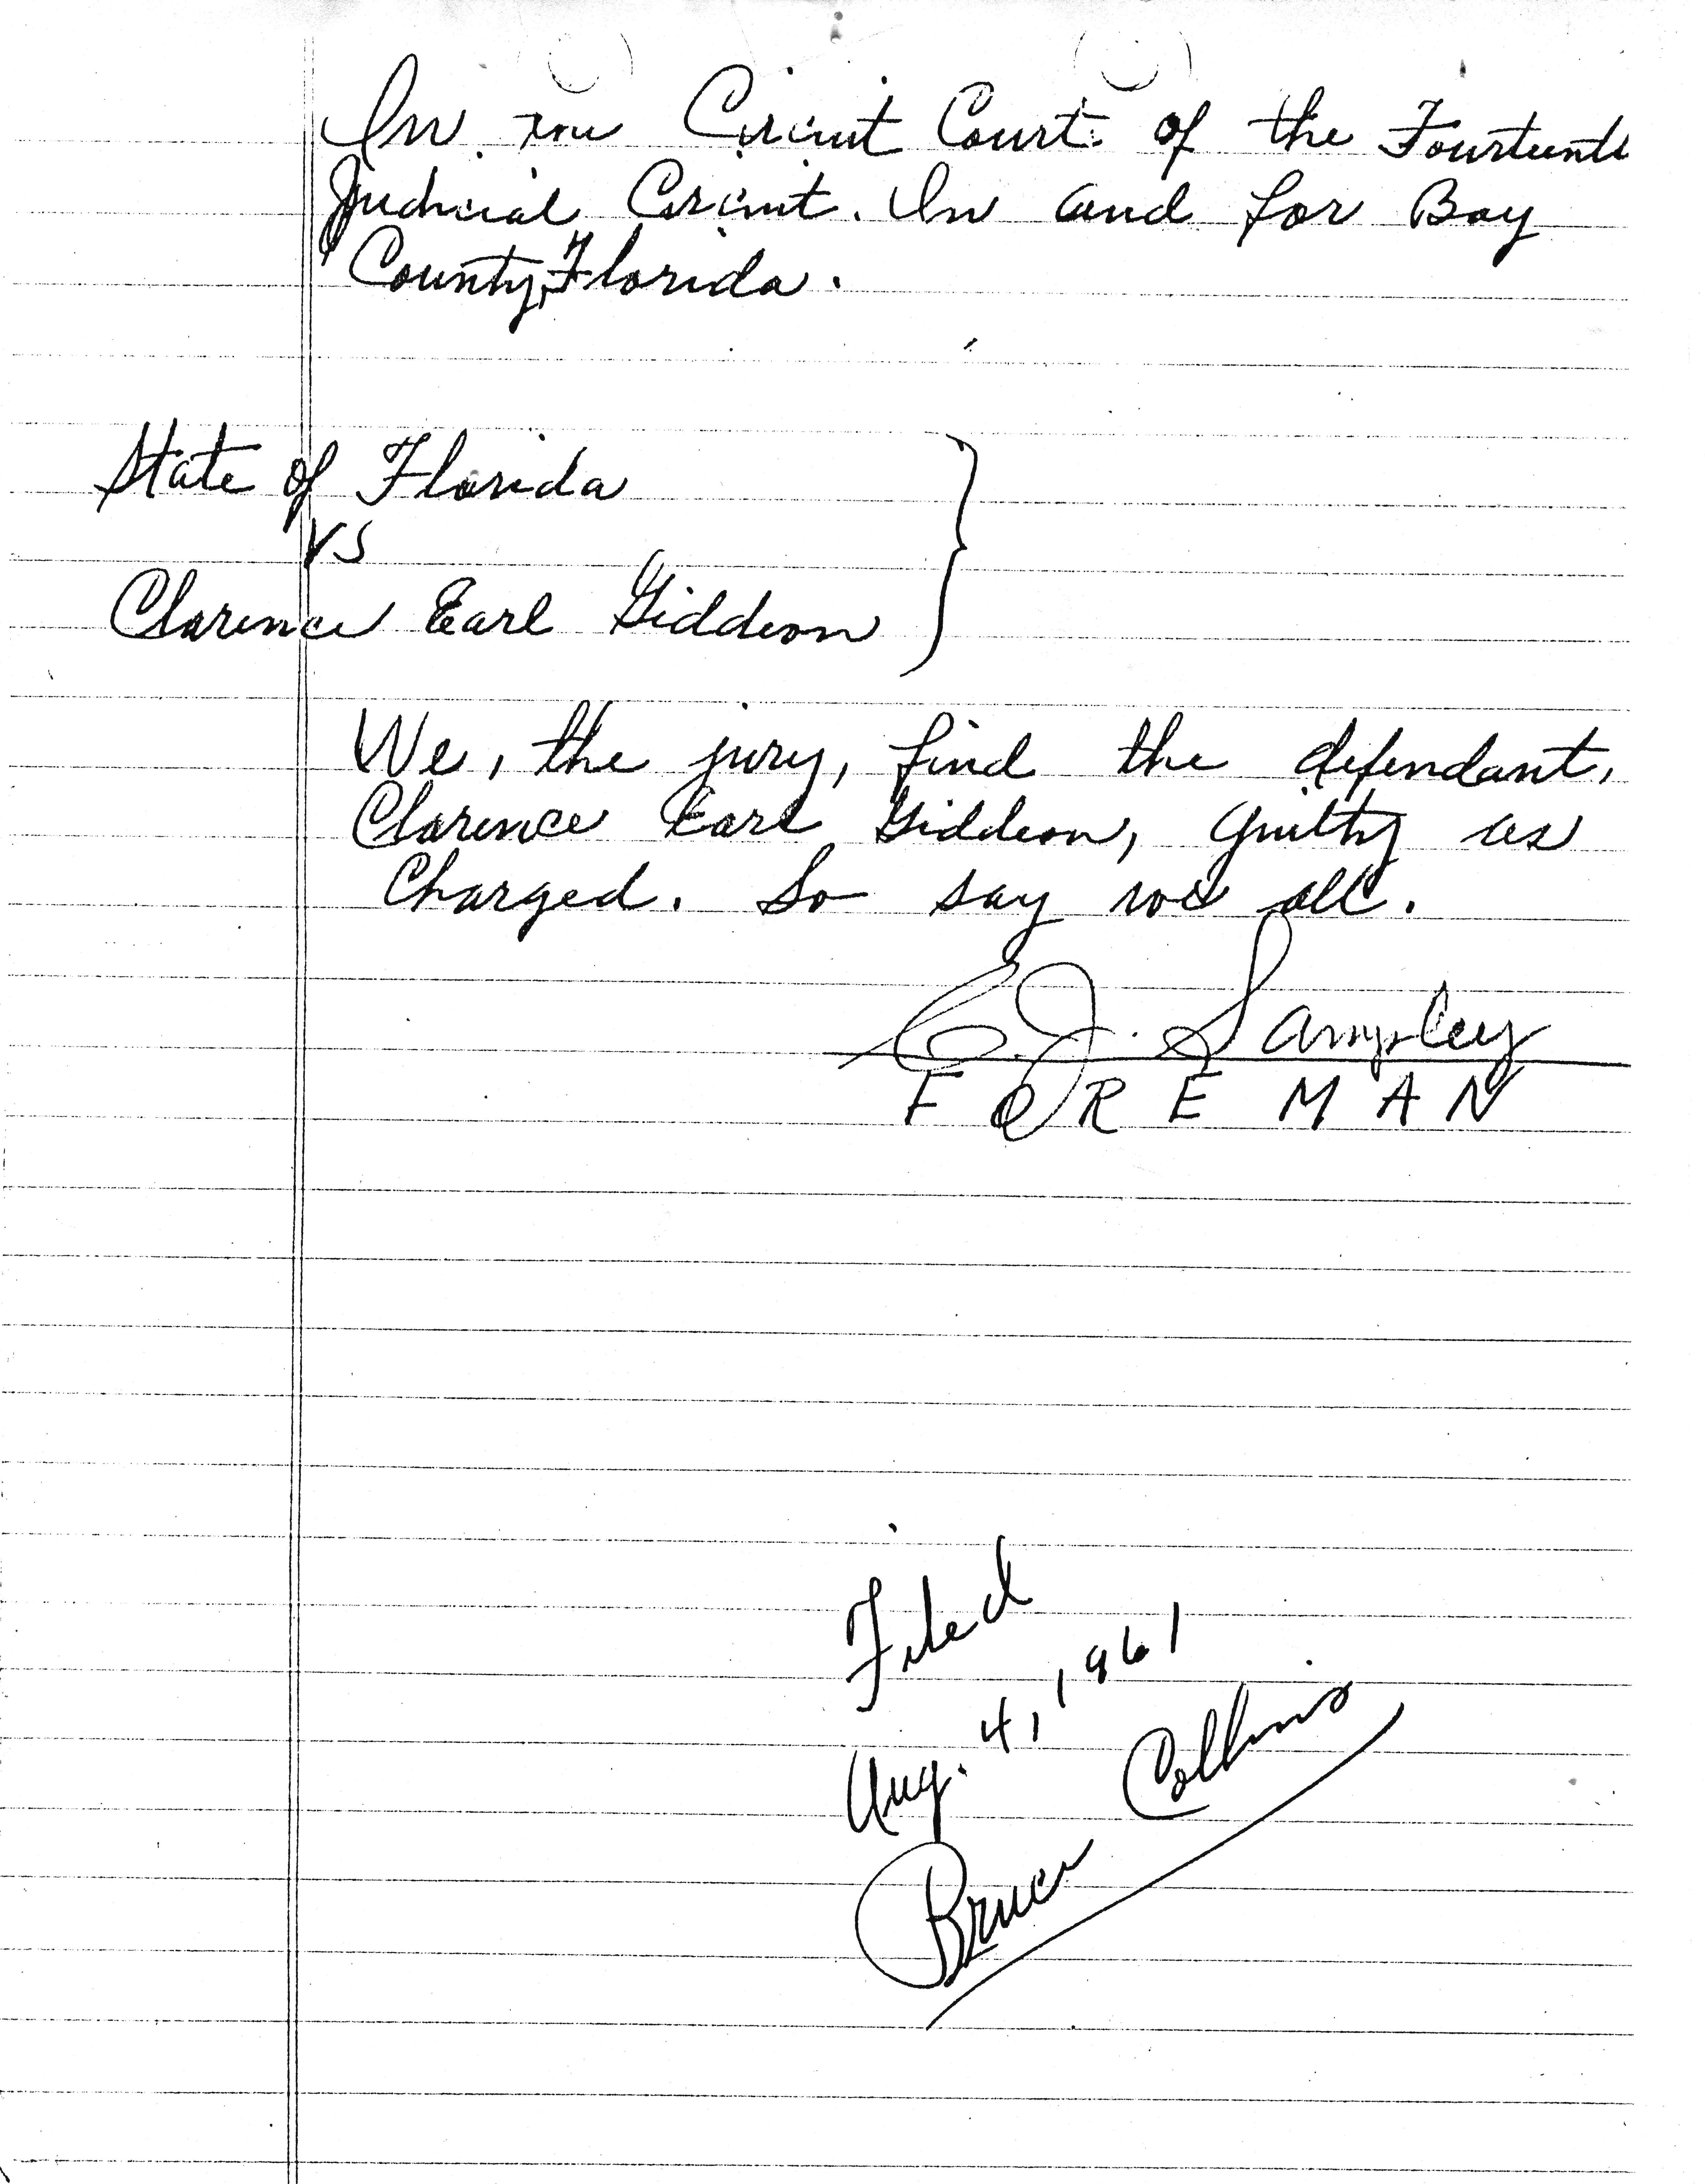 In the Circuit Court of the Fourteenth
Judicial Circuit. In and for Bay
County, Florida.
State of Florida
vs
Clarence Earl Giddeon
We, the jury, find the defendant,
Clarence Earl Giddeon, guilty as
Charged. So say we all.
C.J. Sampley
FOREMAN
Filed
Aug. 4, 1961
Bruce Collins